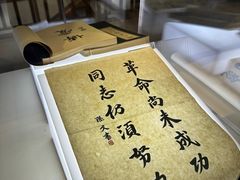 革命尚未成功
同志仍須努
孫文書